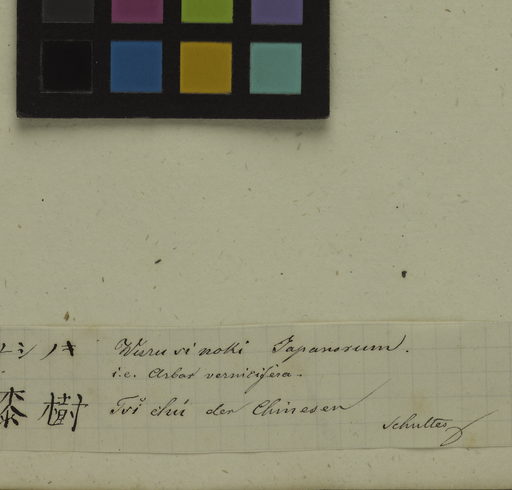 シノキ Wurusi noki Japanorum.
i.e. Arbor vernicifera.
漆樹 Tsi chú der Chinesen
Schultes